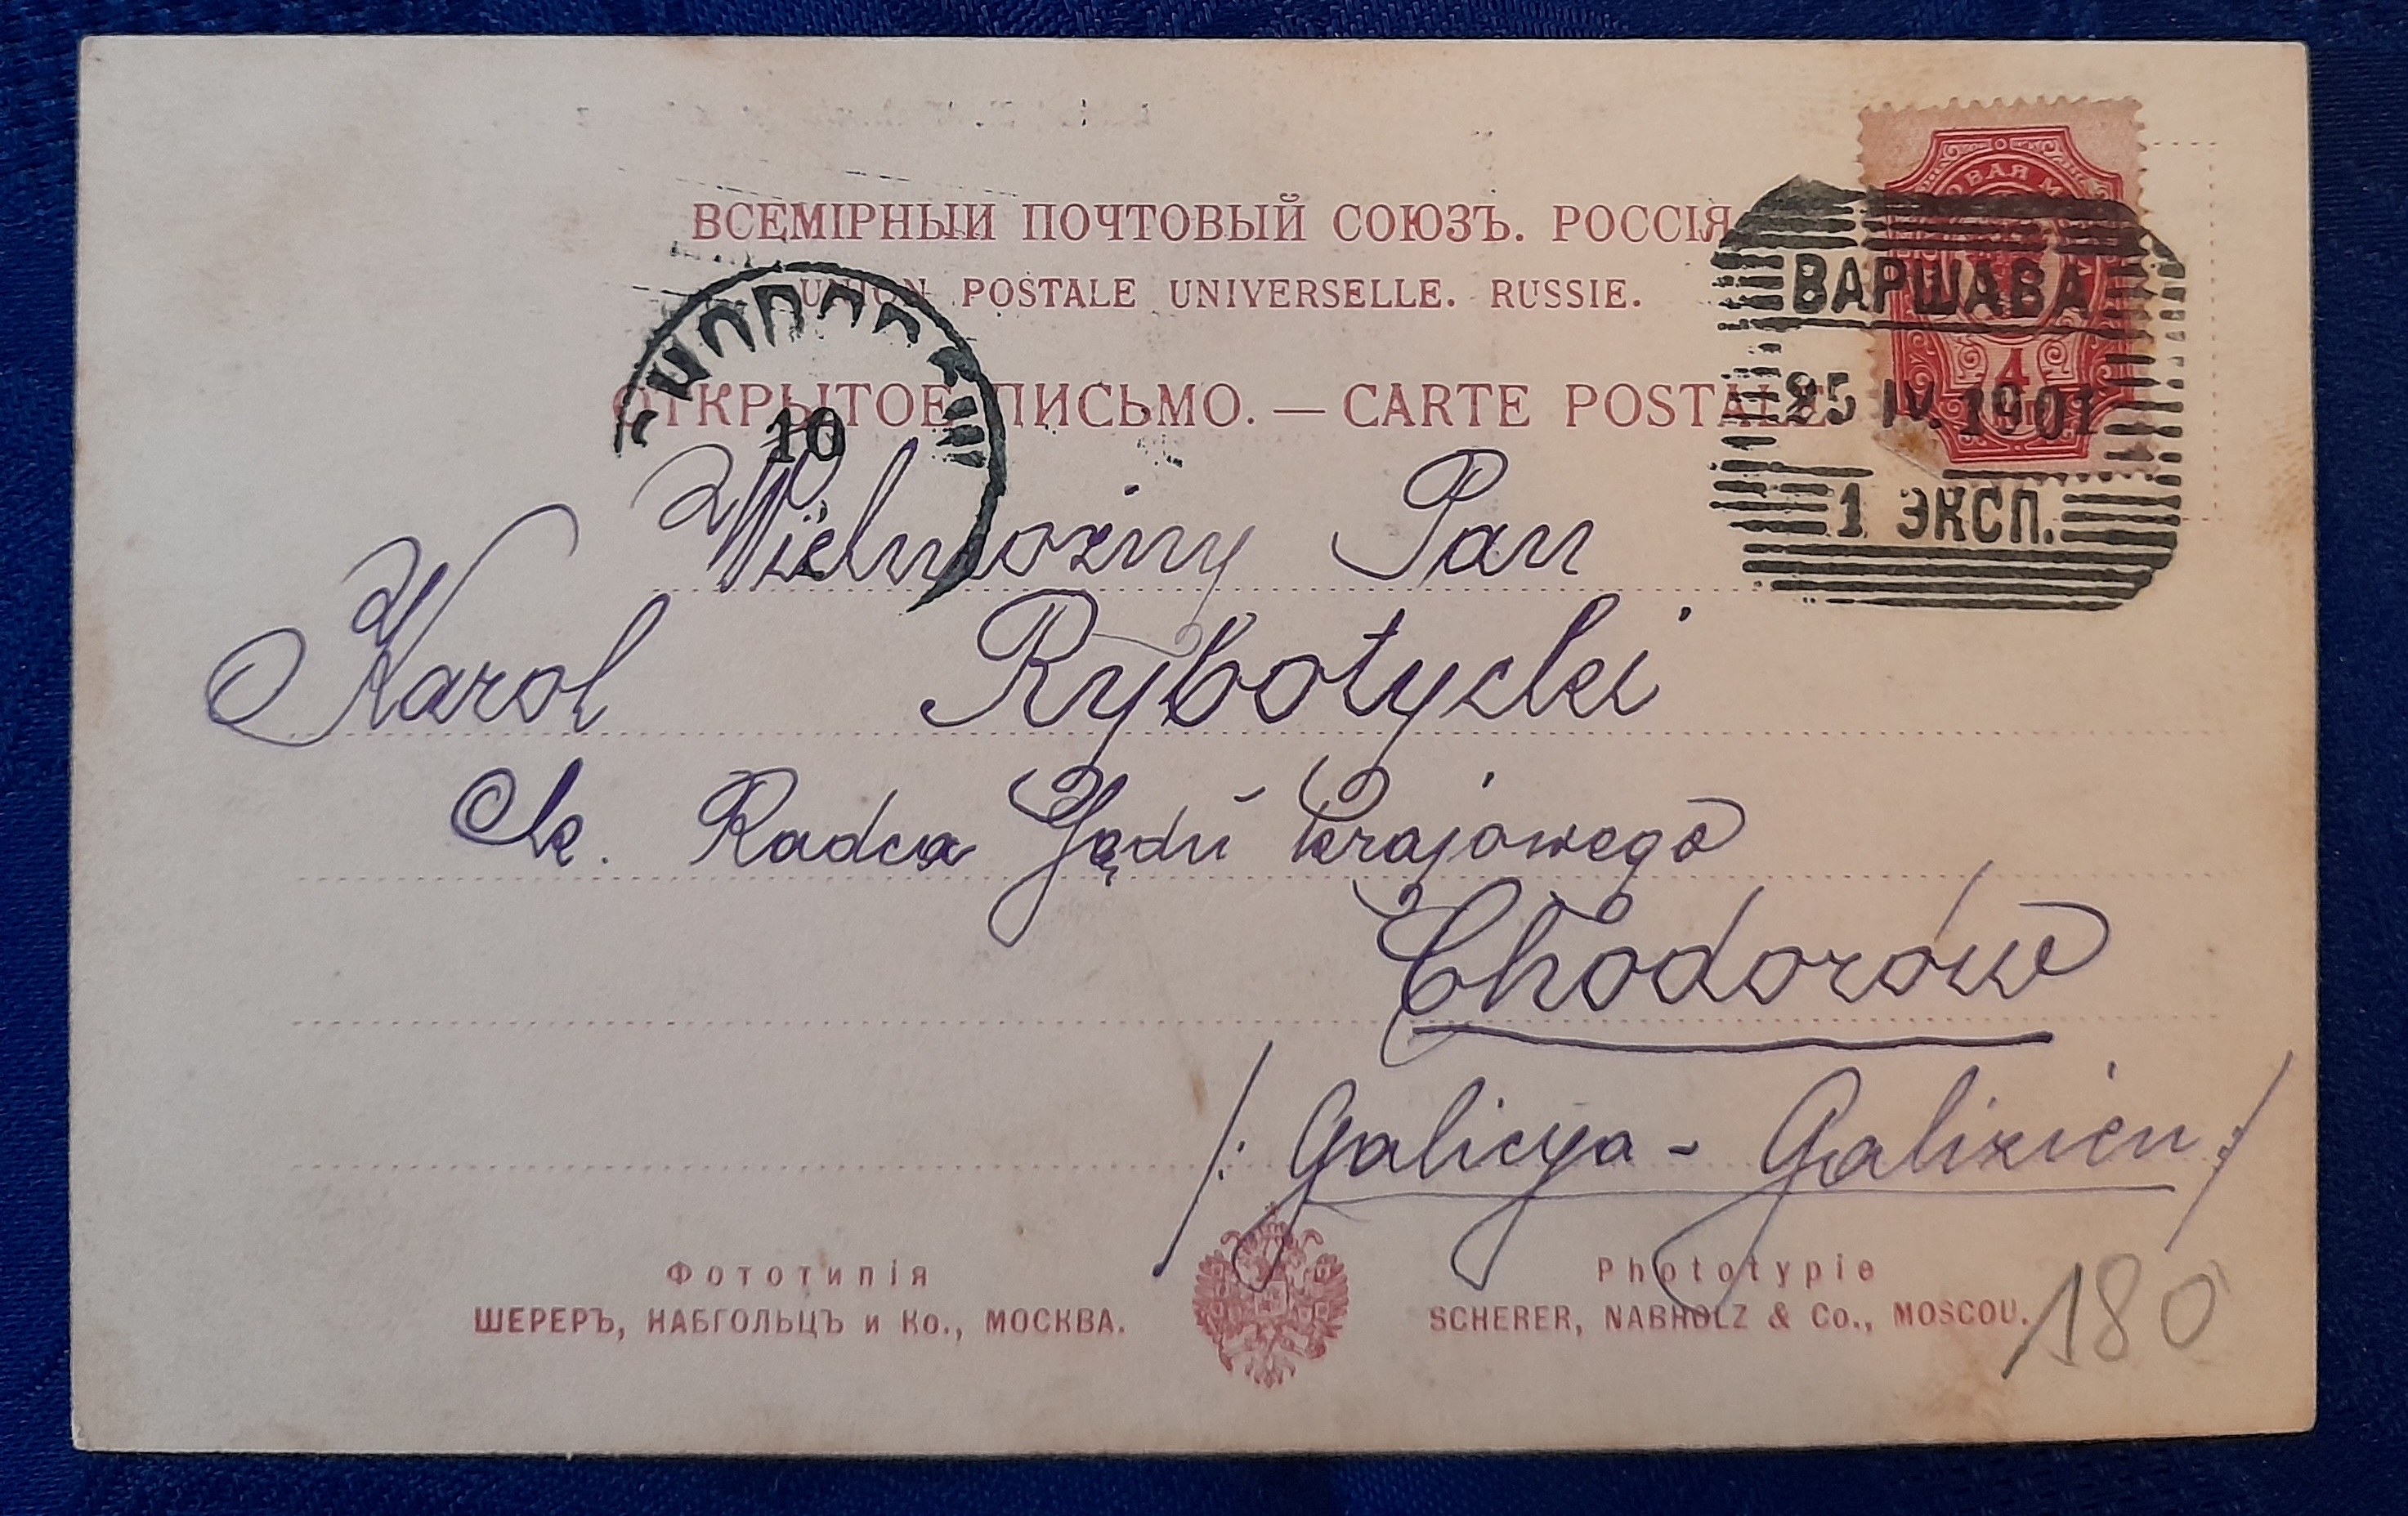 ВСЕМІРНЫЙ ПОЧТОВЫЙ СОЮЗЪ. РОССІЯ
UNION POSTALE UNIVERSELLE. RUSSIE.
ОТКРЫТОЕ ПИСЬМО. — CARTE POSTALE
4
ВАРШАВА
25 IV. 1901
1 ЭКСП.
10
Wielmożny Pan
Karol Rybotycki
Ck. Radca Sądu krajowego
Chodorów
/: Galicya - Galizien :/
Фототипія
ШЕРЕРЪ, НАБГОЛЬЦЪ и Ко., МОСКВА.
Phototypie
SCHERER, NABHOLZ & Co., MOSCOU.
180